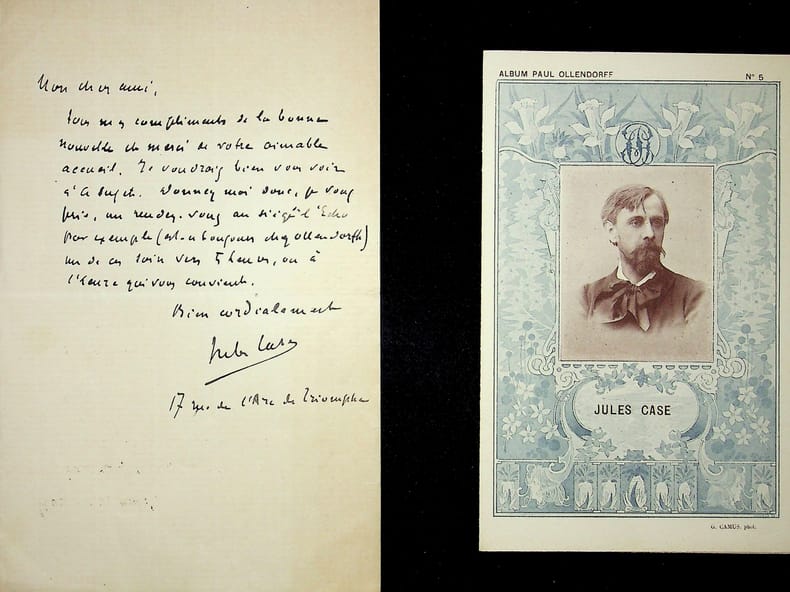 Mon cher ami,
Tous mes compliments de la bonne
nouvelle et merci de votre aimable
accueil. Je voudrais bien vous voir
à ce sujet. Donnez moi donc, je vous
prie, un rendez-vous au siège l'Echo
par exemple (est-ce toujours chez Ollendorff)
un de ces soirs vers 5 heures, ou à
l'heure qui vous convient.
Bien cordialement
Jules Case
17 rue de l'Arc de Triomphe
ALBUM PAUL OLLENDORFF
N° 5
JULES CASE
G. CAMUS, phot.